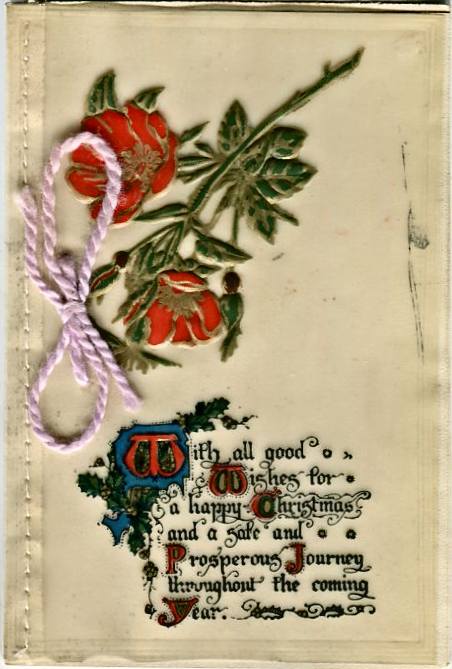 With all good
Wishes for
a happy Christmas
and a safe and
Prosperous Journey
throughout the coming
Year.